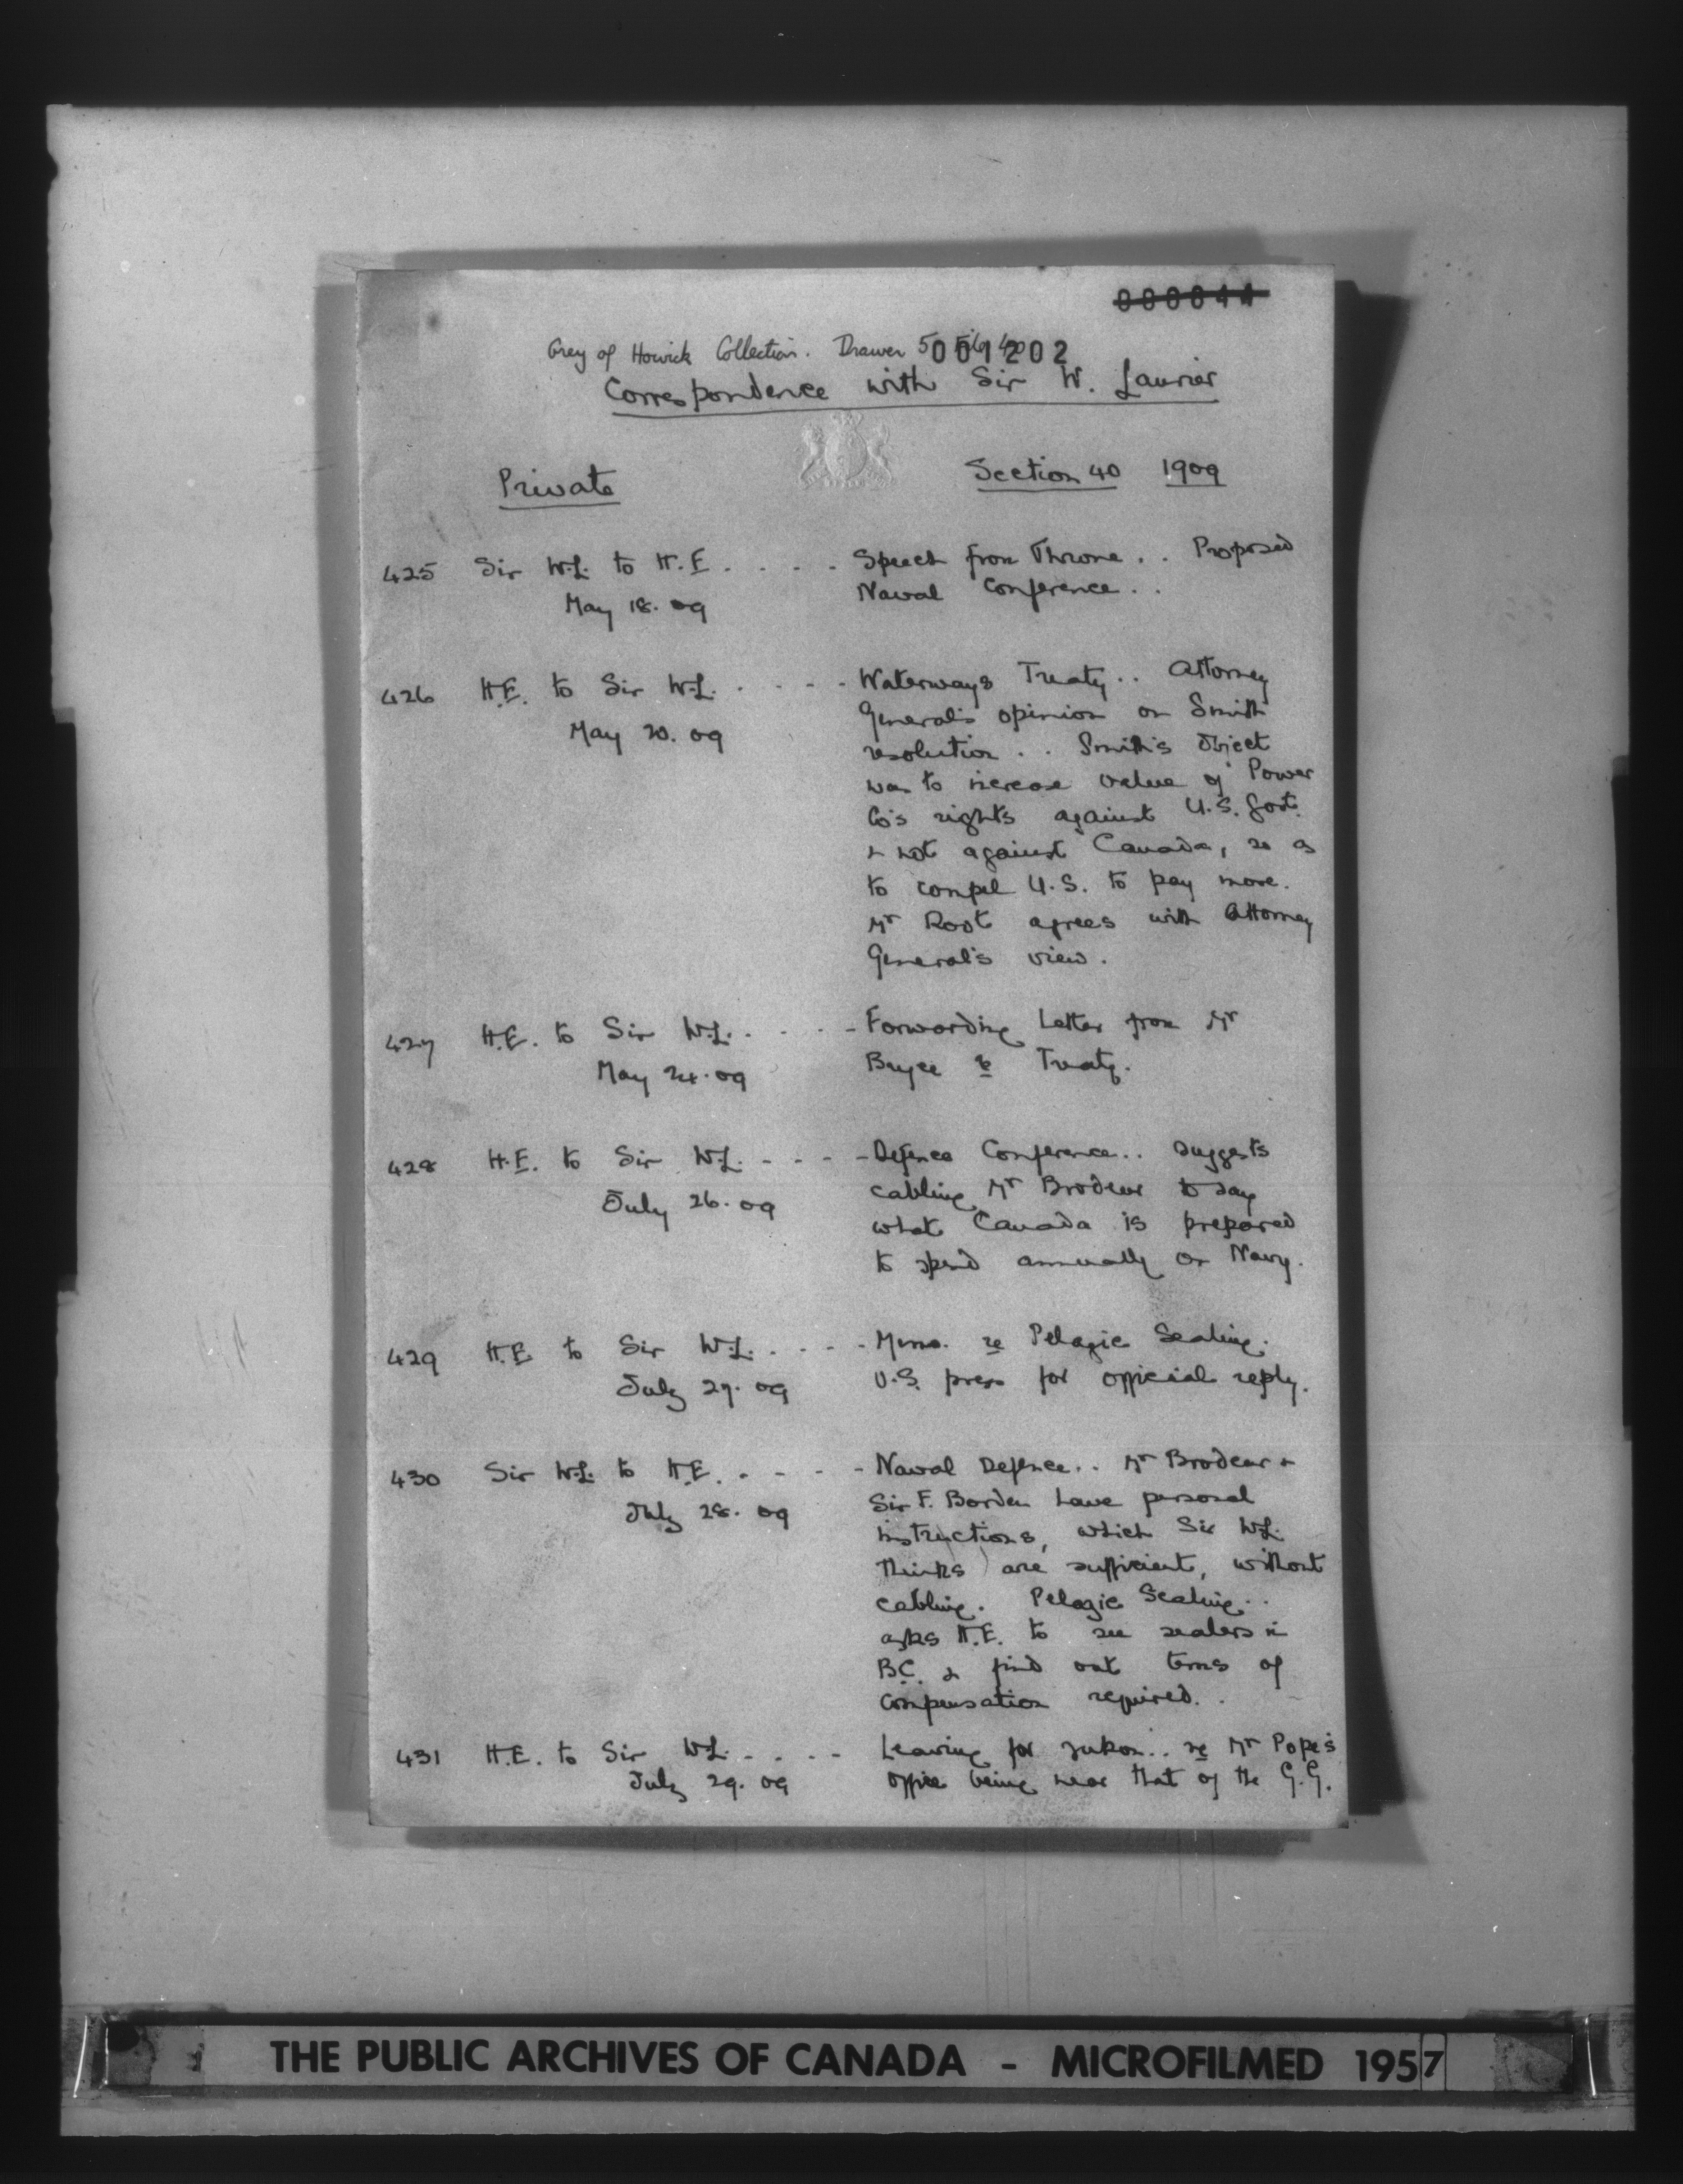 000044
Grey of Howick Collection. Drawer 5
001202
Correspondence with Sir W. Laurier
Private Section 40 1909
425 Sir W.L. to H.E. . . . . Speech from Throne . . Proposed
May 18. 09 Naval Conference . .
426 H.E. to Sir W.L. . . . . Waterways Treaty . . Attorney
General's opinion on Smith
May 20. 09 resolution . . Smith's object
was to increase value of Power
Co's rights against U.S. Govt.
& not against Canada, so as
to compel U.S. to pay more.
Mr Root agrees with Attorney
General's view.
427 H.E. to Sir W.L. . . . . Forwarding Letter from Mr
May 24. 09 Bryce re Treaty.
428 H.E. to Sir W.L. - - - - Defence Conference . . Suggests
July 26. 09 cabling Mr Brodeur to say
what Canada is prepared
to spend annually on Navy.
429 H.E. to Sir W.L. . . . . Memo. re Pelagic Sealing.
July 27. 09 U.S. press for official reply.
430 Sir W.L. to H.E. . . . . Naval Defence . . Mr Brodeur &
July 28. 09 Sir F. Borden have personal
instructions, which Sir W.L.
thinks are sufficient, without
cabling. Pelagic Sealing . .
asks H.E. to see sealers in
B.C. & find out terms of
compensation required. .
431 H.E. to Sir W.L. . . . . Leaving for Yukon . . re Mr Pope's
July 29. 09 office being near that of the G.G.
THE PUBLIC ARCHIVES OF CANADA - MICROFILMED 1957